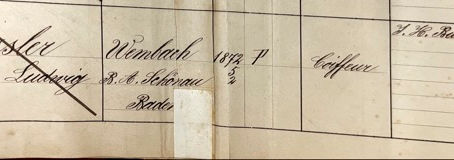 sler
Ludwig
Wembach
B. A. Schönau
Baden
1872
5
2
P
Coiffeur
J. H.